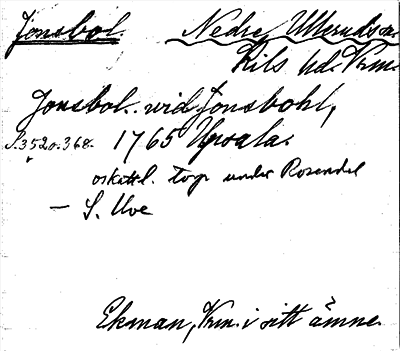 Jonsbol. Nedre Ulleruds sn.
Kils hd. Vrm.
Jonsbol. vid Jonsbohl,
S. 352 o. 368. 1765 Upsala.
oskattl. torp under Rosendal
— S. Uve
Ekman, Vrm. i sitt ämne.